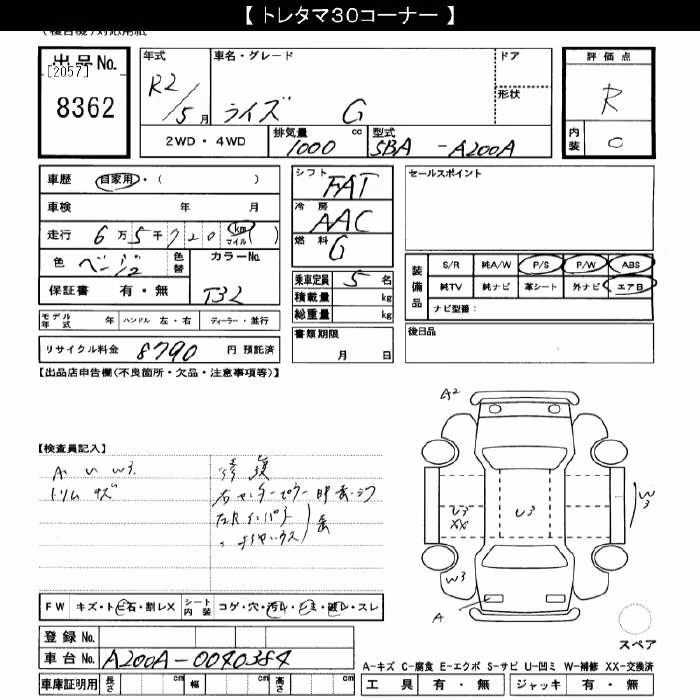 【 トレタマ30コーナー 】
(複合機)対応用紙
出品No.
[2057]
8362
年式 R2/5月
車名・グレード
ライズ G
ドア
形状
評価点
R
内装 C
2WD・4WD
排気量 1000 cc
型式 5BA-A200A
車歴 自家用・( )
車検 年 月
走行 6万5千720 km マイル ( )
色 ベージュ 色替
カラーNo. T32
保証書 有・無
シフト FAT
冷房 AAC
燃料 G
乗車定員 5名
積載量 kg
総重量 kg
書類期限 月 日
セールスポイント
装備品
S/R 純A/W P/S P/W ABS
純TV 純ナビ 革シート 外ナビ エアB
ナビ型番:
後日品
モデル年式 年 ハンドル 左・右 ディーラー・並行
リサイクル料金 8790 円 預託済
【出品店申告欄(不良箇所・欠品・注意事項等)】
【検査員記入】
A. U W3.
トリム キズ
修復
右センターピラー
A2
U3
XX
U3
W3
W3
A
FW キズ・トビ石・割レX
シート内装 コゲ・穴・汚レ・シミ・破レ・スレ
登録No.
車台No. A200A-0040384
スペア
A-キズ C-腐食 E-エクボ S-サビ U-凹ミ W-補修 XX-交換済
車庫証明用 長さ cm 幅 cm 高さ cm
工具 有・無 ジャッキ 有・無